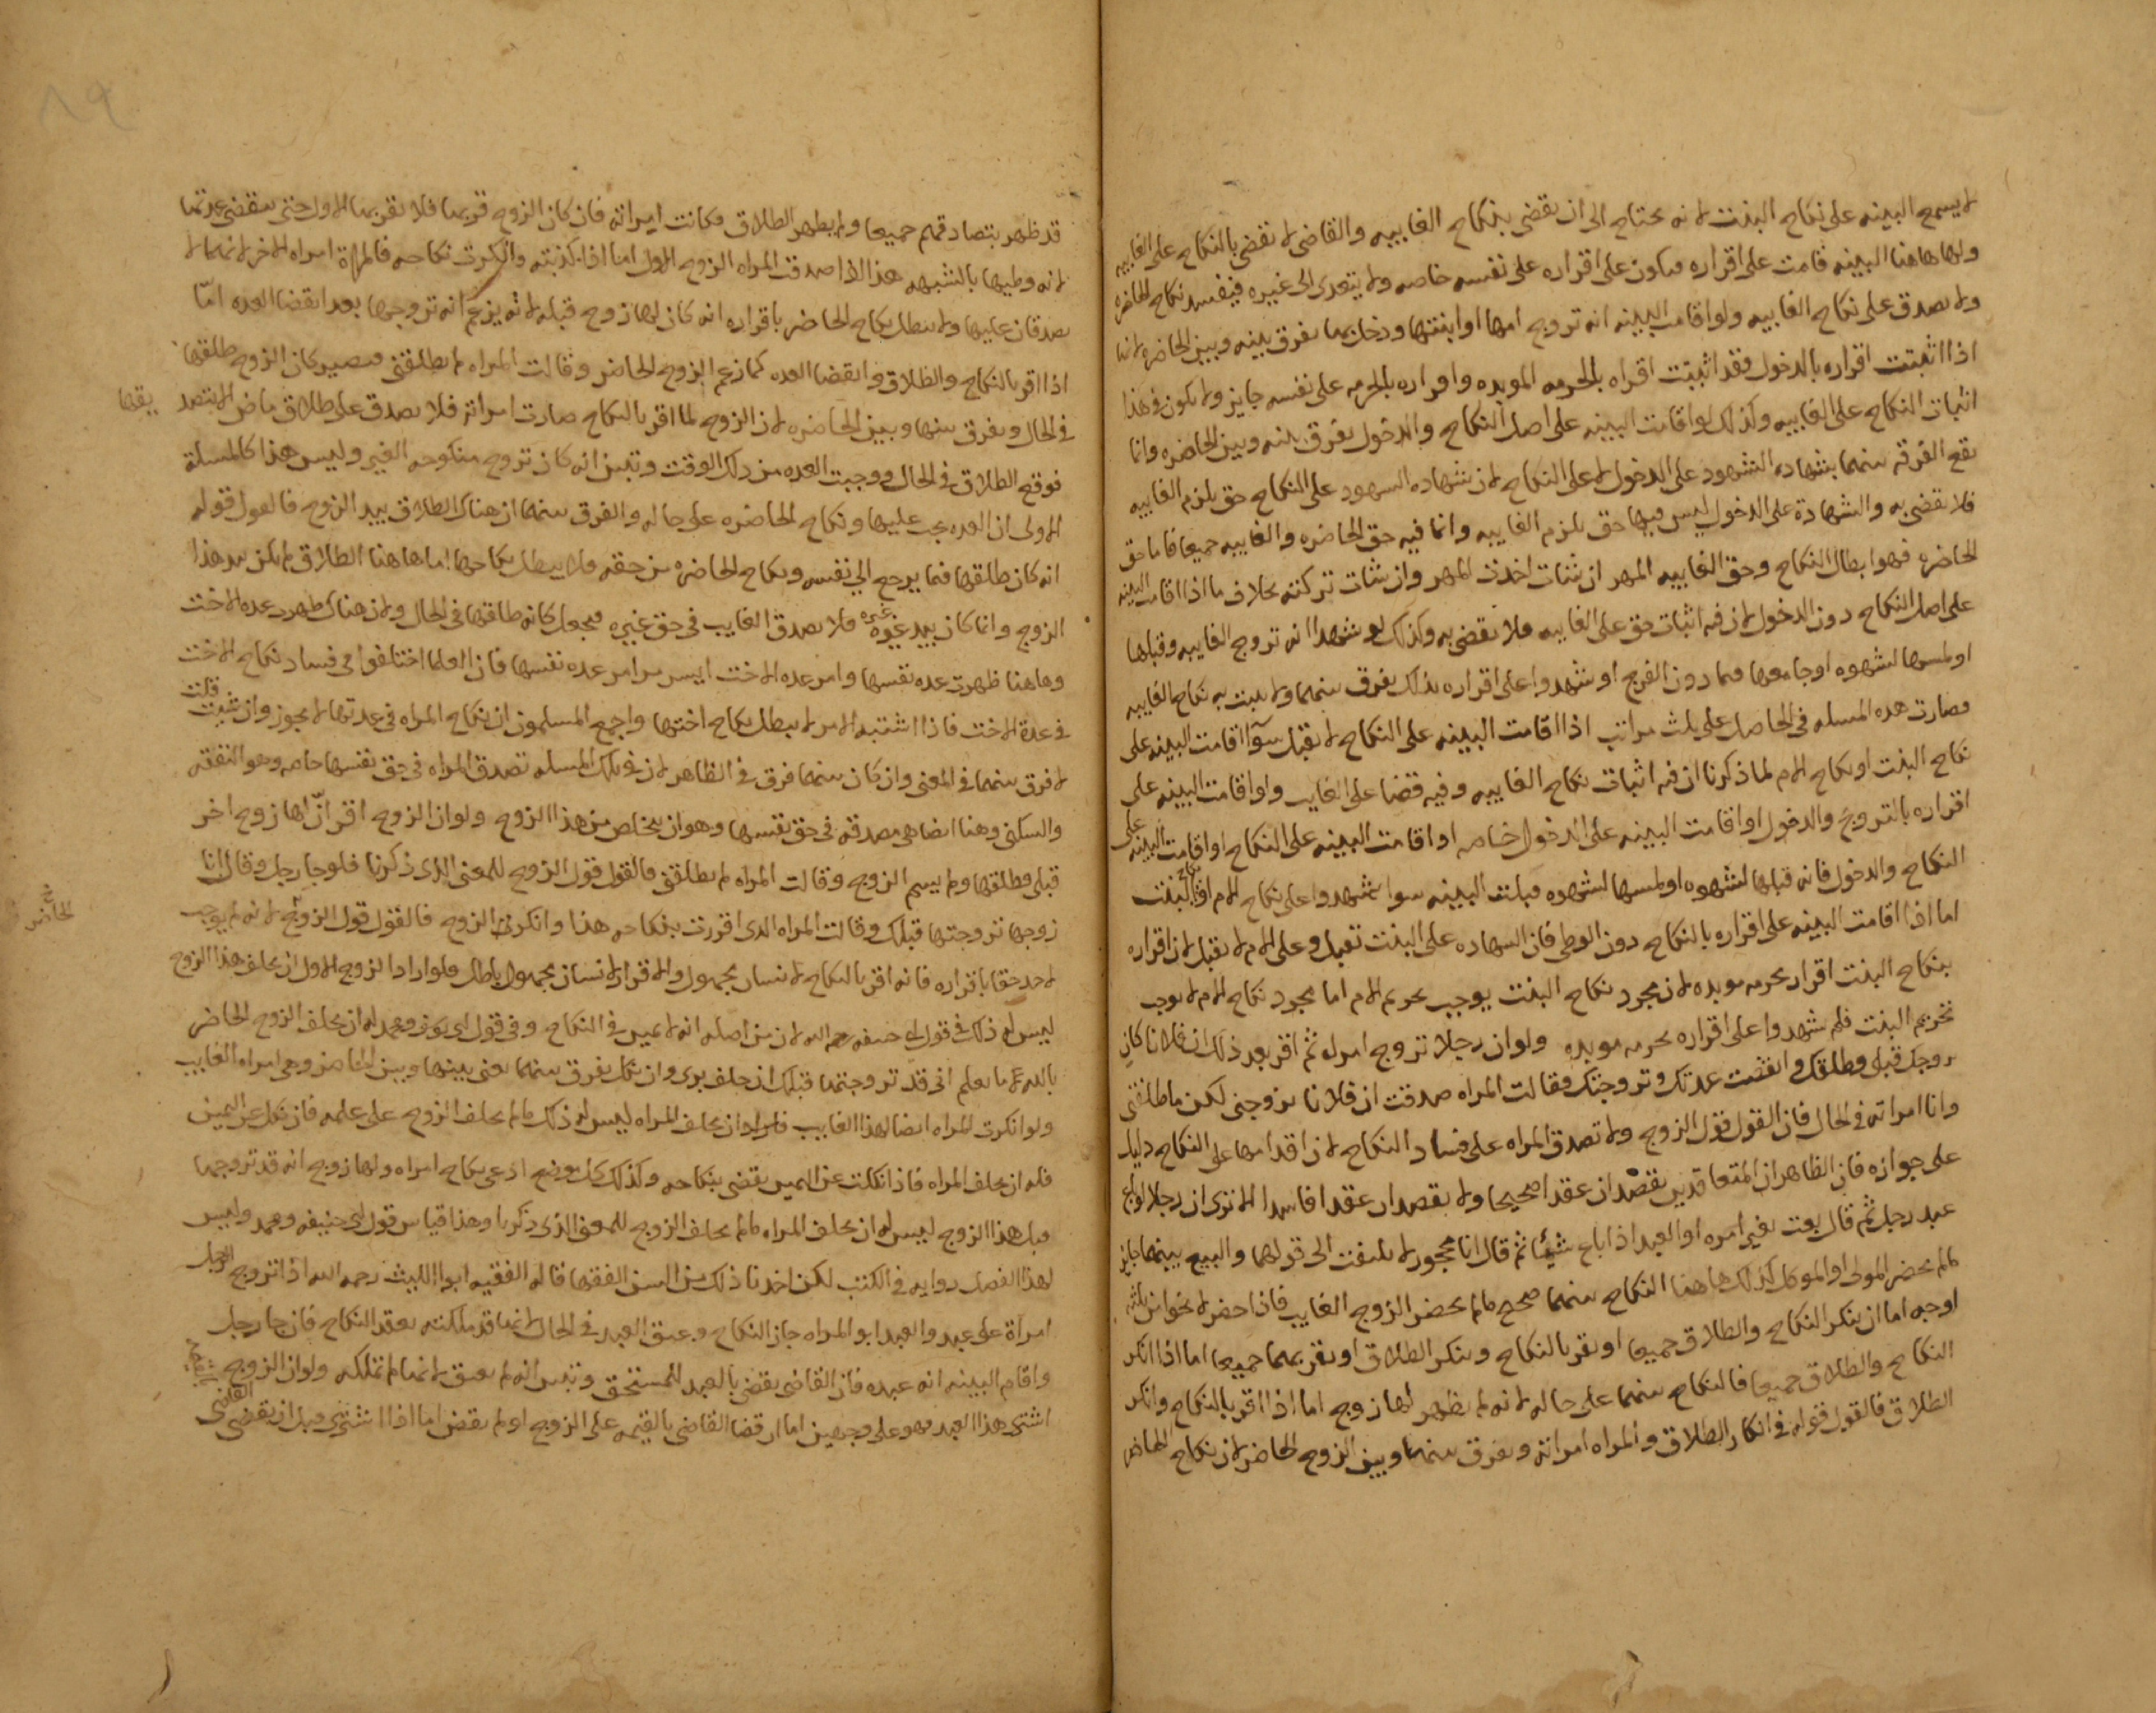 لا يسمع البينه على نكاح البنت لانه محتاج الى ان يقضى بنكاح الغايبه والقاضى لا يقضى بالنكاح على الغايب
ولها هاهنا البينه قامت على اقراره فيكون على اقراره على نفسه خاصه ولا يتعدى الى غيره فيفسد نكاح الحاضره
ولا يصدق على نكاح الغايبه ولو اقامت البينه انه تزوج امها او ابنتها ودخل بها يفرق بينه وبين الحاضره لانها
اذا اثبتت اقراره بالدخول فقد اثبتت اقراه بالحرمه الموبده واقراره بالحرمه على نفسه جايز ولا يكون فى هذا
اثبات النكاح على الغايبه وكذلك لو اقامت البينه على اصل النكاح والدخول يفرق بينه وبين الحاضره وانما
يقع الفرقه بينهما بشهاده الشهود على الدخول لا على النكاح لان شهاده الشهود على النكاح حق يلزم الغايبه
فلا يقضى به والشهادة على الدخول ليس فيها حق يلزم الغايبه وانما فيه حق الحاضره والغايبه جميعا فاما حق
الحاضره فهو ابطال النكاح وحق الغايبه المهر ان شات اخذت المهر وان شات تركته بخلاف ما اذا اقامت البينه
على اصل النكاح دون الدخول لان فيه اثبات حق على الغايبه فلا يقضى به وكذلك لو شهدا انه تزوج الغايبه وقبلها
او لمسها لشهوه او جامعها فيما دون الفرج او شهدوا على اقراره بذلك يفرق بينهما ولا يثبت به نكاح الغايبه
فصارت هده المسله فى الحاصل على ثلث مراتب اذا اقامت البينه على النكاح لا يقبل سوآ اقامت البينه على
نكاح البنت او نكاح الام لما ذكرنا ان فيه اثبات نكاح الغايبه وفيه قضا على الغايب ولو اقامت البينه على
اقراره بالتزويج والدخول او اقامت البينه على الدخول خاصه او اقامت البينه على النكاح او اقامت البينه على
النكاح والدخول فانه قبلها لشهوه او لمسها لشهوه قبلت البينه سوا شهدوا على نكاح الام او نكاح البنت
اما اذا اقامت البينه على اقراره بالنكاح دون الوطى فان الشهاده على البنت تقبل وعلى الام لا يقبل لان اقراره
بنكاح البنت اقرار بحرمه موبده لان مجرد نكاح البنت يوجب تحريم الام اما مجرد نكاح الام لا يوجب
تحريم البنت فلم يشهدوا على اقراره بحرمه موبده ولو ان رجلا تزوج امراه ثم اقر بعد ذلك ان فلانا كان
زوجك قبلى وطلقك وانقضت عدتك وتزوجتك فقالت المراه صدقت ان فلانا تزوجنى لكن ما طلقنى
وانا امراته فى الحال فان القول قول الزوج ولا تصدق المراه على فساد النكاح لان اقدامها على النكاح دليل
على جوازه فان الظاهر ان المتعاقدين يقصدان عقدا صحيحا ولا يقصدان عقدا فاسدا الا ترى ان رجلا لو باع
عبد رجل ثم قال بعت بغير امره او العبد اذا باع شيئا ثم قال انا محجور لا يلتفت الى قولهما والبيع بينهما جايز
مالم يحضر المولى او الموكل كذلك هاهنا النكاح بينهما صحيح مالم يحضر الزوج الغايب فاذا حضر لا يخوا من ثلثه
اوجه اما ان ينكر النكاح والطلاق جميعا او يقر بالنكاح وينكر الطلاق او يقر بهما جميعا اما اذا انكر
النكاح والطلاق جميعا فالنكاح بينهما على حاله لانه لم يظهر لها زوج اما اذا اقر بالنكاح وانكر
الطلاق فالقول قوله فى انكار الطلاق والمراه امراته ويفرق بينهما وبين الزوج الحاضر لان نكاح الحاضر
قد ظهر بتصادقهم جميعا ولم يظهر الطلاق فكانت امراته فان كان الزوج قربها فلا يقربها الاول حتى ينقضى عدتها
لانه وطيها بالشبهه هذا اذا صدقت المراه الزوج الاول اما اذا كذبته وانكرت نكاحه فالمراة امراه الاخر لانهما لا
يصدقان عليها ولا يبطل نكاح الحاضر باقراره انه كان لها زوج قبله لانه يزعم انه تزوجها بعد انقضا العده امّا
اذا اقر بالنكاح والطلاق وانقضا العده كما زعم الزوج الحاضر وقالت المراه لم يطلقنى فيصير كان الزوج طلقها
فى الحال ويفرق بينها وبين الحاضره لان الزوج لما اقر بالنكاح صارت امراته فلا يصدق على طلاق ماض الا بتصد
يقها
فوقع الطلاق فى الحال ووجبت العده من ذلك الوقت وتبين انه كان تزوج منكوحه الغير وليس هذا كالمسلة
الاولى ان العده يجب عليها ونكاح الحاضره على حاله والفرق بينهما ان هناك الطلاق بيد الزوج فالقول قوله
انه كان طلقها فيما يرجع الى نفسه ونكاح الحاضره من حقه فلا يبطل نكاحها اما هاهنا الطلاق لم يكن بيد هذا
الزوج وانما كان بيد غيره فلا يصدق الغايب فى حق غيره فيجعل كانه طلقها فى الحال ولان هناك ظهور عده الاخت
وهاهنا ظهرت عده نفسها وامر عده الاخت ايسر من امر عده نفسها فان العلما اختلفوا فى فساد نكاح الاخت
فى عدة الاخت فاذا اشتبه الامر لا يبطل نكاح اختها واجمع المسلمون ان نكاح المراه فى عدتها لا يجوز وان شيت قلت
لا فرق بينهما فى المعنى وان كان بينهما فرق فى الظاهر لان فى تلك المسله تصدق المراه فى حق نفسها خاصه وهو النفقه
والسكنى وهنا ايضا هى مصدقه فى حق نفسها وهو ان يتخلص من هذا الزوج ولو ان الزوج اقر انّ لها زوج اخر
قبلى وطلقها ولم يسم الزوج وقالت المراه لم يطلقنى فالقول قول الزوج للمعنى الذى ذكرنا فلو جا رجل وقال انا
زوجها تزوجتها قبلك وقالت المراه الذى اقررت بنكاحه هذا وانكر الزوج فالقول قول الزوج لانه لم يوجب
الحاضر
لاحد حقا باقراره فانه اقر بالنكاح لانسان مجهول والاقرار لانسان مجهول باطل ولو اراد الزوج الاول ان يحلف هذا الزوج
ليس له ذلك فى قول ابى حنيفه رحمه الله لان من اصله انه لا يمين فى النكاح وفى قول ابى يوسف ومحمد له ان يحلف الزوج الحاضر
بالله ما يعلم انى قد تزوجتها قبلك ان حلف برى وان نكل يفرق بينهما يعنى بينها وبين الحاضر وهى امراه الغايب
ولو انكرت المراه ايضا لهذا الغايب فاراد ان يحلف المراه ليس له ذلك مالم يحلف الزوج على علمه فان نكل عن اليمين
فله ان يحلف المراه فاذا نكلت عن اليمين يقضى بنكاحه وكذلك كل موضع ادعى نكاح امراه ولها زوج انه قد تزوجها
قبل هذا الزوج ليس له ان يحلف المراه مالم يحلف الزوج للمعنى الذى ذكرنا وهذا قياس قول ابى حنيفه ومحمد وليس
لهذا الفصل روايه فى الكتب لكن اخذنا ذلك من السن الفقها قال الفقيه ابو الليث رحمه الله اذا تزوج الرجل
امراة على عبد والعبد ابو المراه جاز النكاح وعتق العبد فى الحال لانها قد ملكته بعقد النكاح فان جا رجل
واقام البينه انه عبده فان القاضى يقضى بالعبد للمستحق وتبين انه لم يعتق لانها لم تملكه ولو ان الزوج
اشترى هذا العبد فهو على وجهين اما ان قضا القاضى بالقيمه على الزوج او لم يقض اما اذا اشترى قبل ان يقضى القاضى